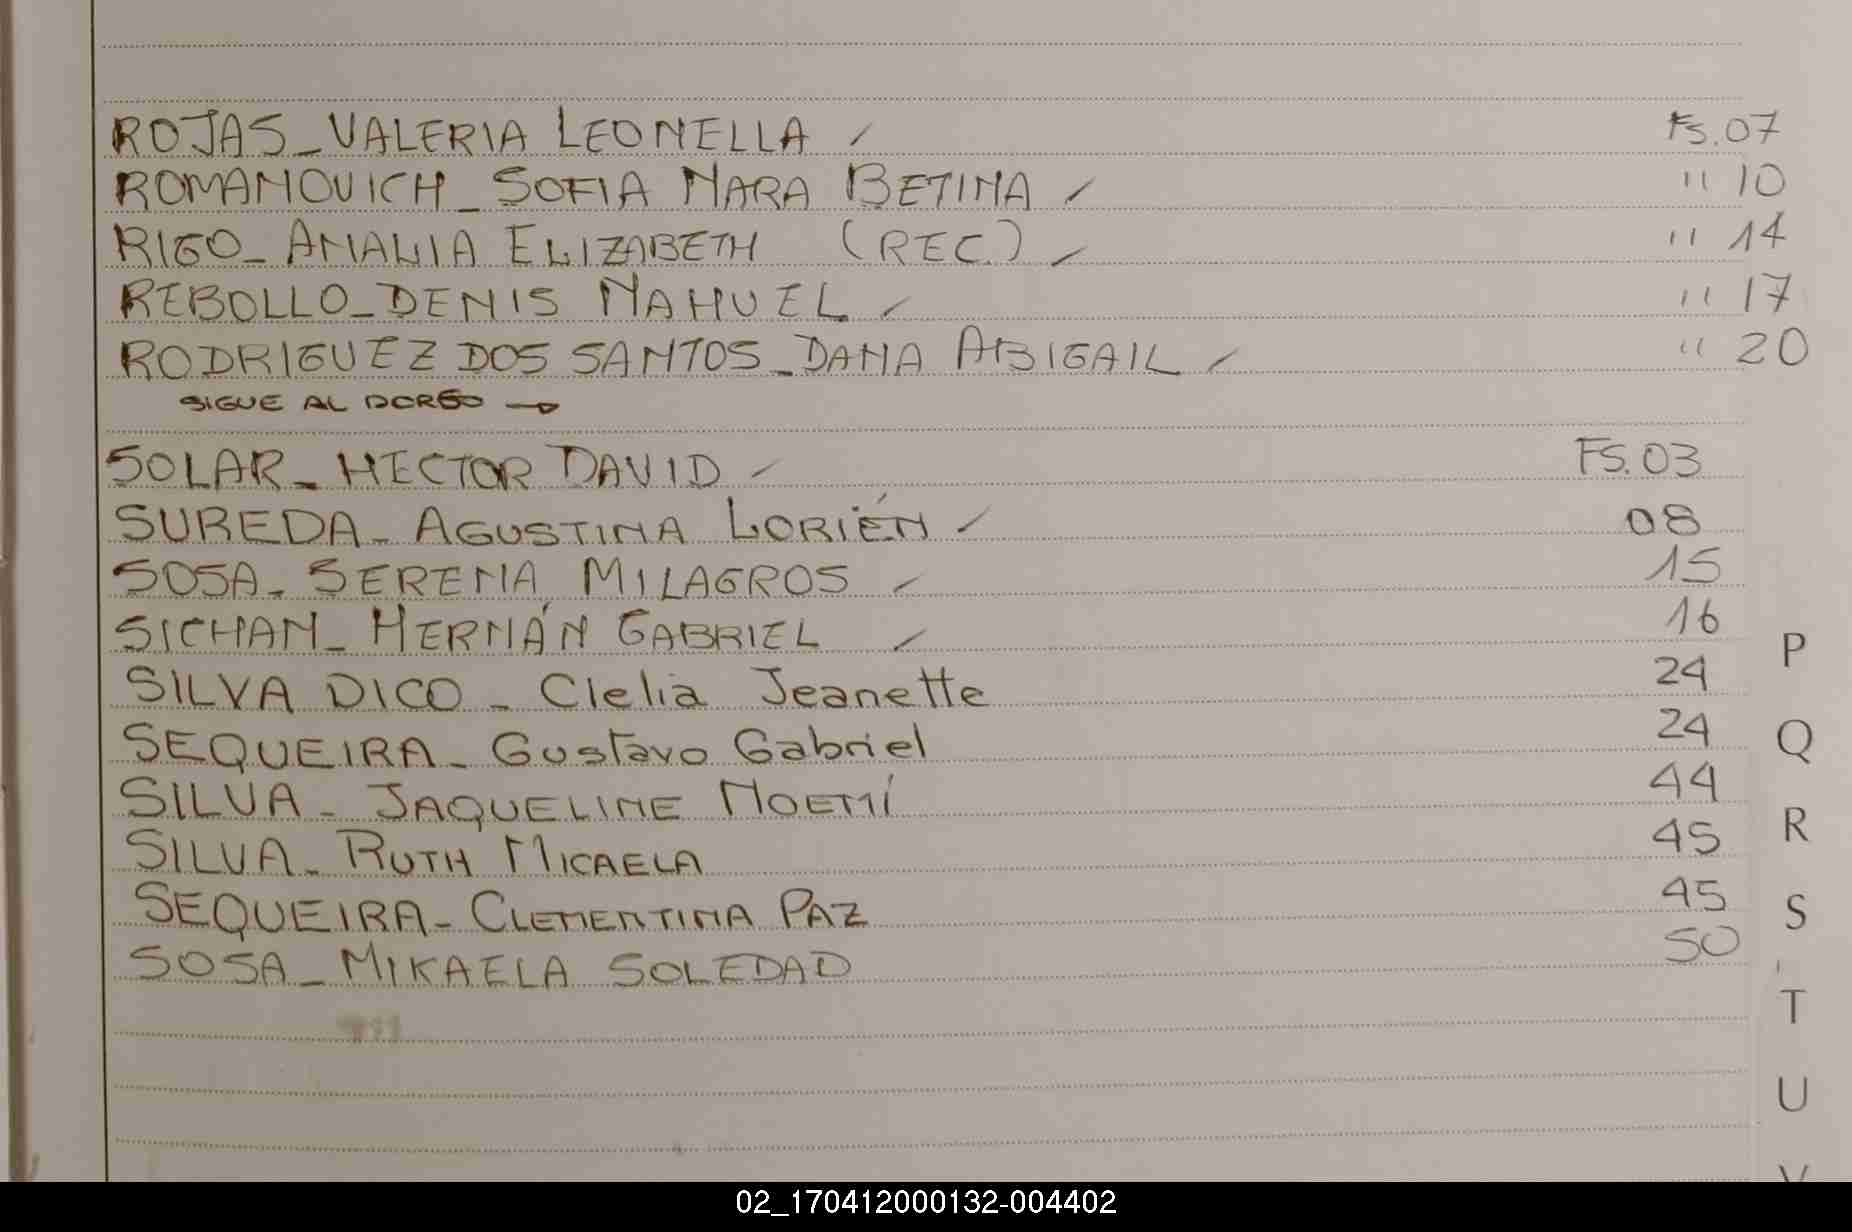 ROJAS_VALERIA LEONELLA / FS.07
ROMANOVICH_SOFIA NARA BETINA / " 10
RIGO_AMALIA ELIZABETH (REC.) / " 14
REBOLLO_DENIS NAHUEL / " 17
RODRIGUEZ DOS SANTOS_DANA ABIGAIL / " 20
SIGUE AL DORSO →
SOLAR_HECTOR DAVID / FS.03
SUREDA_AGUSTINA LORIÉN / 08
SOSA_SERENA MILAGROS / 15
SICHAN_HERNÁN GABRIEL / 16
SILVA DICO_Clelia Jeanette 24
SEQUEIRA_Gustavo Gabriel 24
SILVA_JAQUELINE NOEMÍ 44
SILVA_RUTH MICAELA 45
SEQUEIRA_CLEMENTINA PAZ 45
SOSA_MIKAELA SOLEDAD 50
P
Q
R
S
T
U
V
02_170412000132-004402